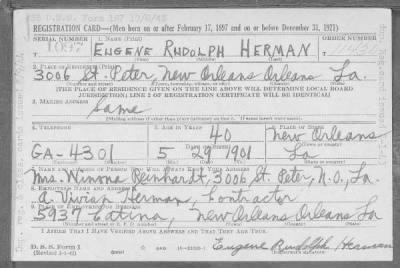 REGISTRATION CARD—(Men born on or after February 17, 1897 and on or before December 31, 1921)
SERIAL NUMBER 1. NAME (Print) ORDER NUMBER
1097 EUGENE RUDOLPH HERMAN
2. PLACE OF RESIDENCE (Print)
3006 St. Peter, New Orleans Orleans La.
[THE PLACE OF RESIDENCE GIVEN ON THE LINE ABOVE WILL DETERMINE LOCAL BOARD
JURISDICTION; LINE 2 OF REGISTRATION CERTIFICATE WILL BE IDENTICAL]
3. MAILING ADDRESS
Same
[Mailing address if other than place indicated on line 2. If same insert word same]
4. TELEPHONE 5. AGE IN YEARS 6. PLACE OF BIRTH
40 New Orleans
GA-4301 5 29 1901 La
7. NAME AND ADDRESS OF PERSON WHO WILL ALWAYS KNOW YOUR ADDRESS
Mrs. Ninona Reinhardt, 3006 St. Peter, N.O., La
8. EMPLOYER'S NAME AND ADDRESS
A Vivian Herman, Contractor
9. PLACE OF EMPLOYMENT OR BUSINESS
5937 Catina, New Orleans Orleans La
I AFFIRM THAT I HAVE VERIFIED ABOVE ANSWERS AND THAT THEY ARE TRUE.
D. S. S. Form 1
Eugene Rudolph Herman